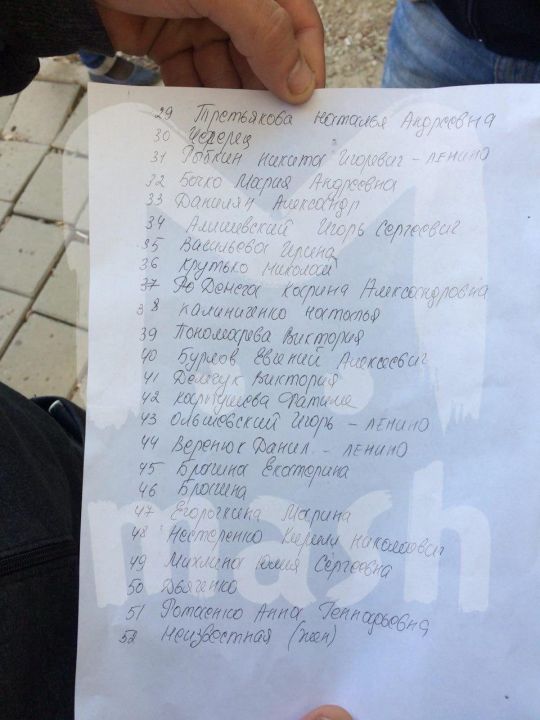 29 Третьякова Наталья Андреевна
30 Чедерец
31 Рабкин Никита Игоревич - ЛЕНИНО
32 Бочко Мария Андреевна
33 Данилян Александр
34 Алишевский Игорь Сергеевич
35 Васильева Ирина
36 Крутько Николай
37 Денега Карина Александровна
38 Калиниченко Наталья
39 Пономарева Виктория
40 Бурлов Евгений Алексеевич
41 Демчук Виктория
42 Карпушева Фатиме
43 Ольшевский Игорь - ЛЕНИНО
44 Веренюк Данил - ЛЕНИНО
45 Брагина Екатерина
46 Брагина
47 Егорочкина Марина
48 Нестеренко Кирилл Николаевич
49 Михлина Юлия Сергеевна
50 Дьяченко
51 Ротаенко Анна Геннадьевна
52 Неизвестная (жен)
mash